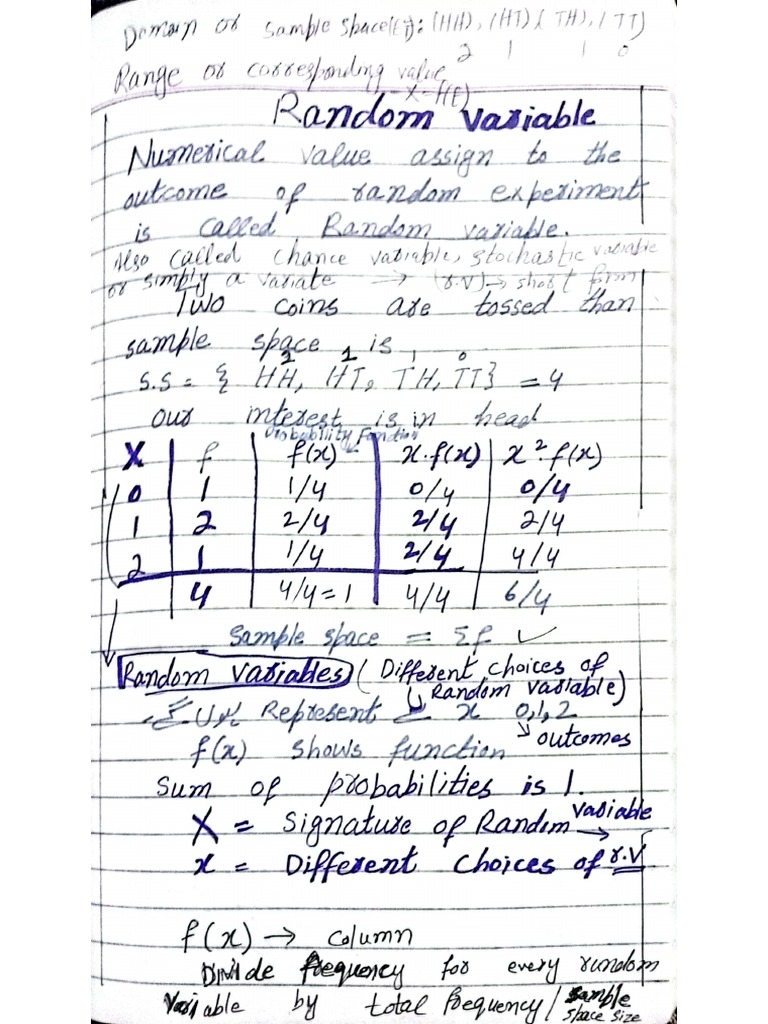 Domain or sample space(E): (HH), (HT) (TH), (TT)
2 1 1 0
Range or corresponding value
-X-H(E)
Random variable
Numerical value assign to the
outcome of random experiment
is called Random variable.
Also called chance variable, stochastic variable
or simply a variate → (r.v) → short form
Two coins are tossed than
sample space is
2 1 1 0
S.S = { HH, HT, TH, TT} = 4
our interest is in head
Probability Function
X f f(x) x.f(x) x².f(x)
0 1 1/4 0/4 0/4
1 2 2/4 2/4 2/4
2 1 1/4 2/4 4/4
4 4/4=1 4/4 6/4
Sample space = Σf ✓
Random variables (Different choices of
Random variable)
Represent x 0,1,2
f(x) shows function → outcomes
Sum of probabilities is 1.
X = Signature of Random variable →
x = Different Choices of r.v
f(x) → column
Divide frequency for every random
Variable by total frequency/ sample
space size